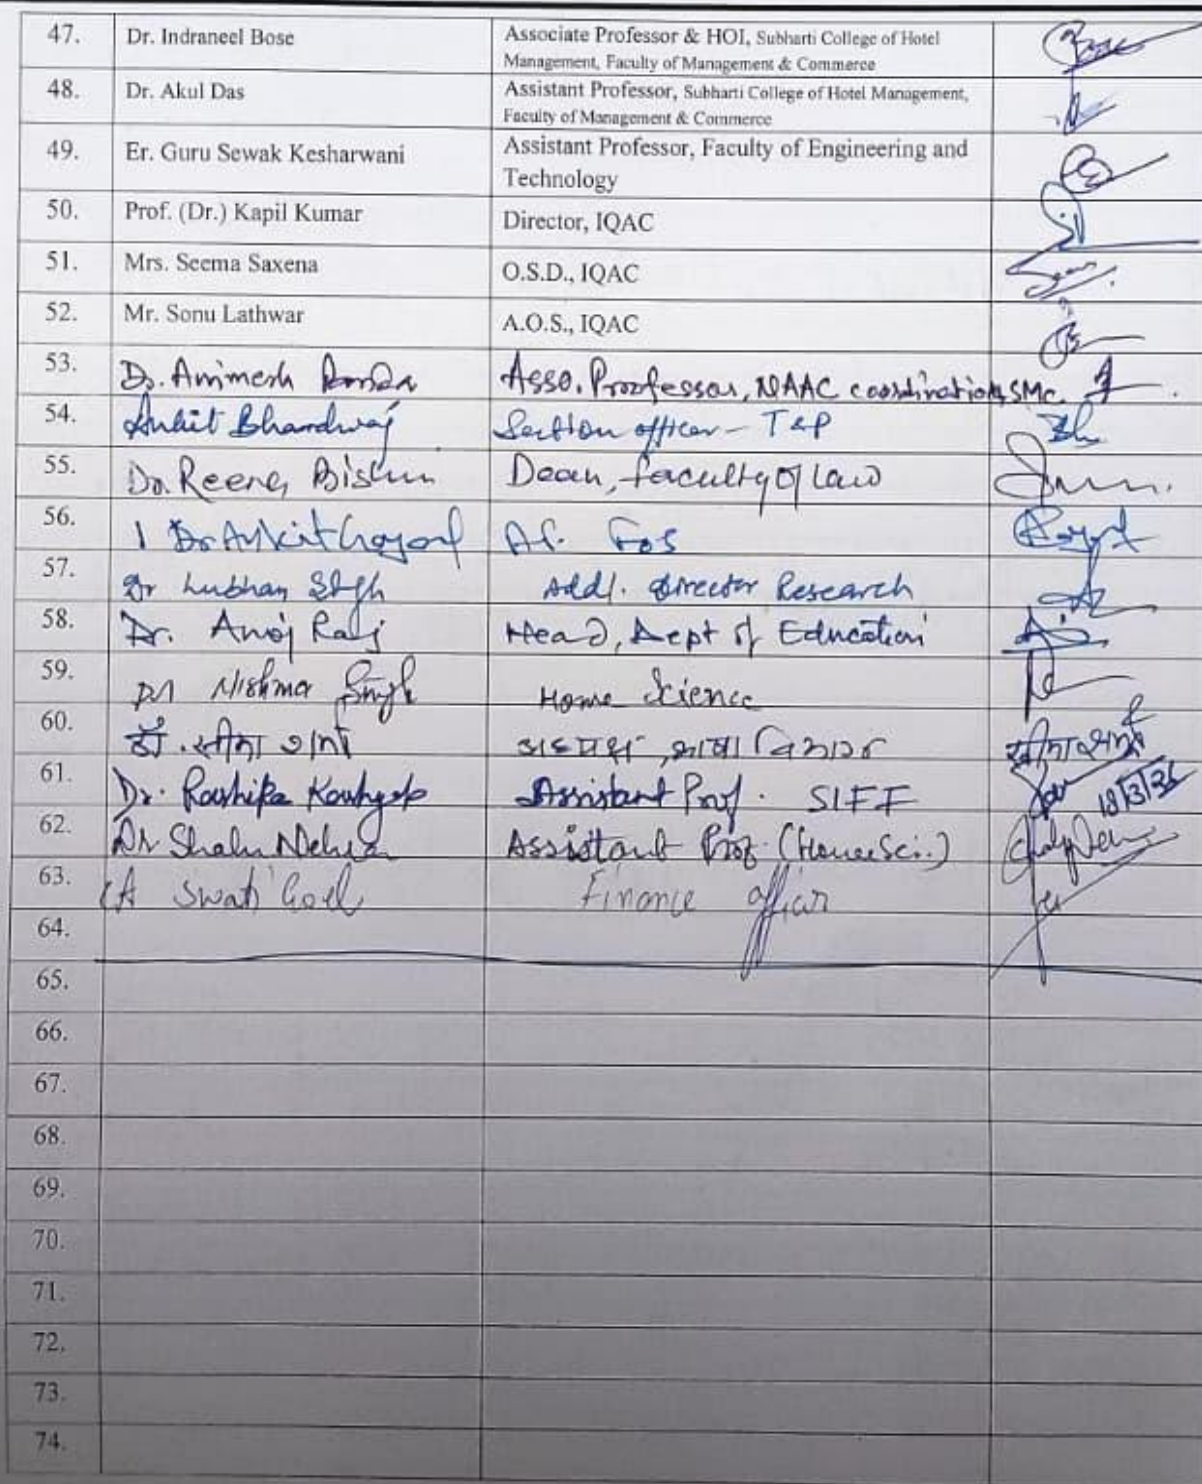 47. Dr. Indraneel Bose Associate Professor & HOI, Subharti College of Hotel
Management, Faculty of Management & Commerce
48. Dr. Akul Das Assistant Professor, Subharti College of Hotel Management,
Faculty of Management & Commerce
49. Er. Guru Sewak Kesharwani Assistant Professor, Faculty of Engineering and
Technology
50. Prof. (Dr.) Kapil Kumar Director, IQAC
51. Mrs. Seema Saxena O.S.D., IQAC
52. Mr. Sonu Lathwar A.O.S., IQAC
53. Dr. Animesh Asso. Proofessor, NAAC coordination, SMC.
54. Ankit Bhardwaj Section officer - T&P
55. Dr. Reena Dean, faculty of Law
56. Dr Ankit
57. Dr Lubhan Singh Addl. Director Research
58. Dr. Anoj Raj Head, Dept of Education
59. Dr Nishma Singh Home Science
60. डॉ. सीमा शर्मा अध्यक्ष, भाषा विभाग
61. Dr. Assistant Prof. SIFF
62. Dr Shalu Nehra Assistant Prof. (Home Sci.)
63. CA Swati Goel Finance officer
64.
65.
66.
67.
68.
69.
70.
71.
72.
73.
74.